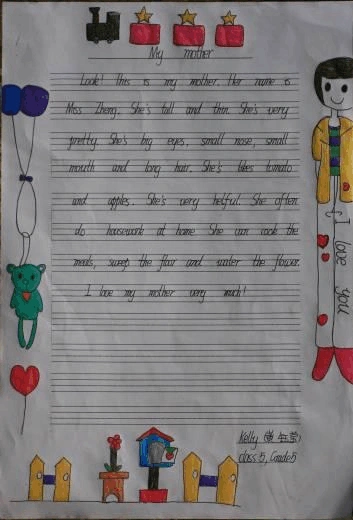 My mother
Look! This is my mother. Her name is
Miss Zheng. She's tall and thin. She's very
pretty. She's big eyes, small nose, small
mouth and long hair. She's likes tomato
and apples. She's very helful. She often
do housework at home. She can cook the
meals, sweep the floor and water the flower.
I love my mother very much!
I love you
Kelly
class 5, Grade 5